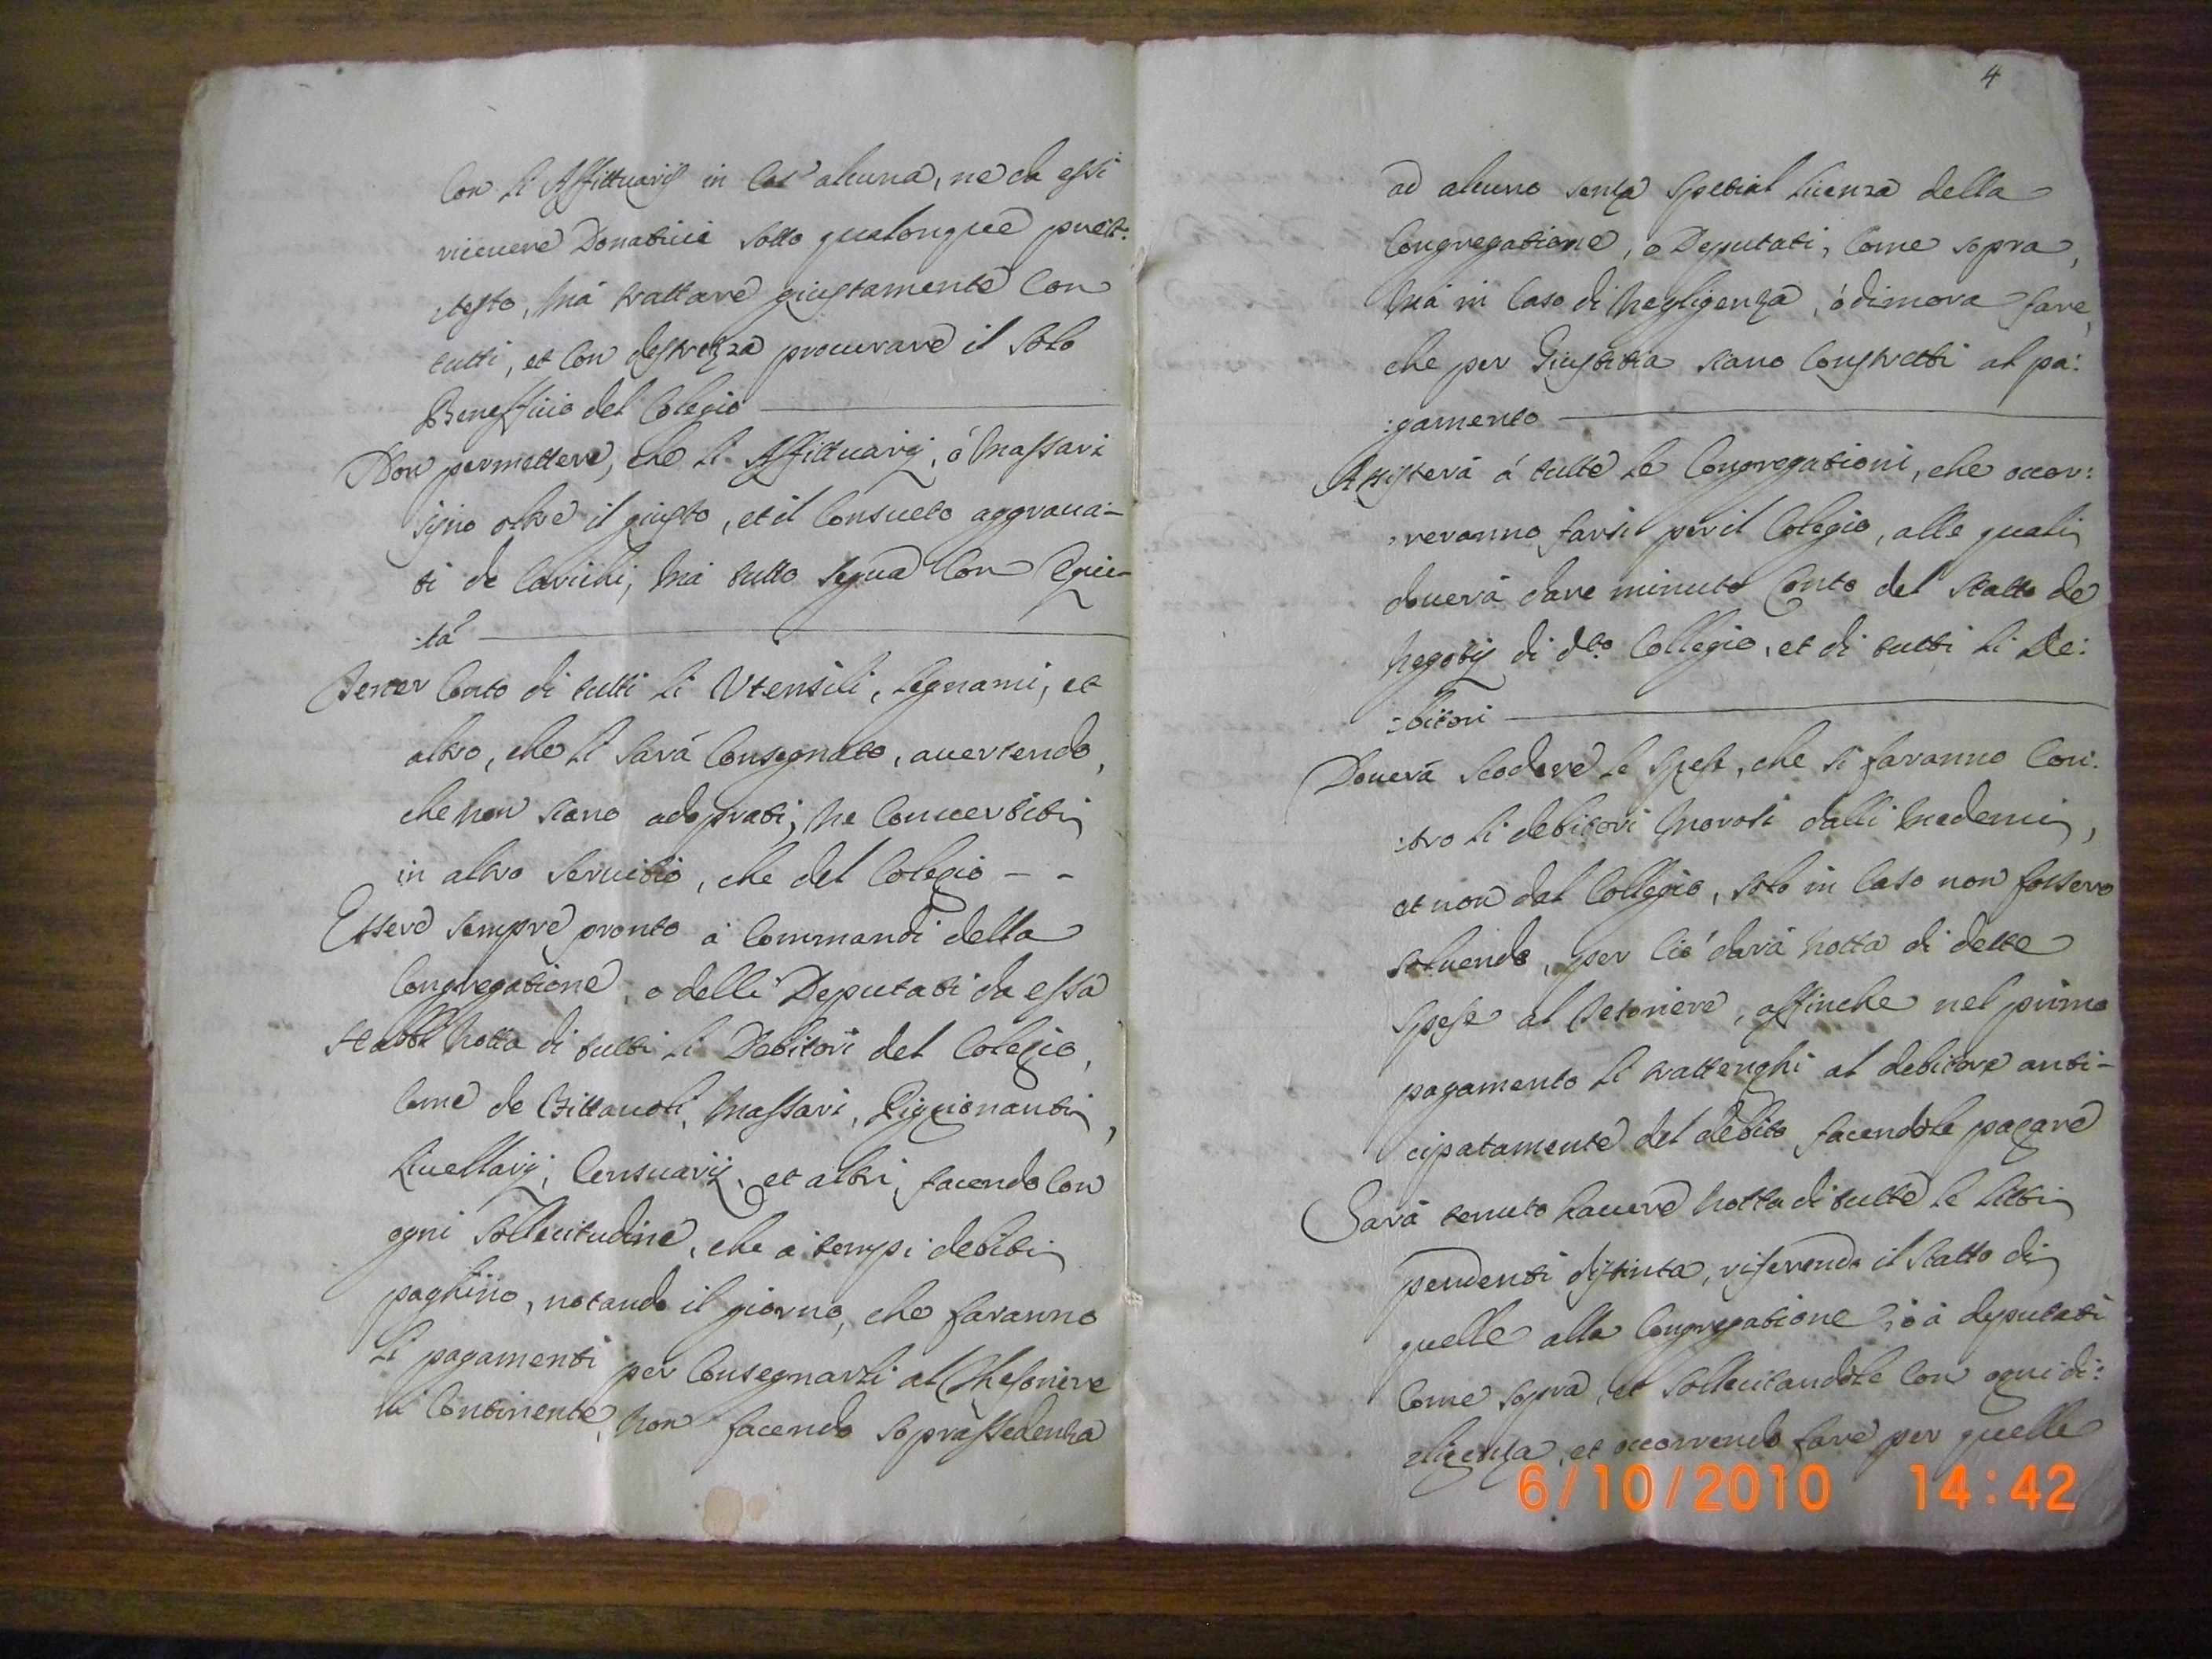 Con li Affittuarij in cos' alcuna, ne da essi
riceuere Donatiui sotto qualongue pret:
:testo, mà trattare giustamente con
tutti, et con destrezza procurare il solo
Benefficio del Colegio
Non permettere, che li Affittuarij, ó Massari
sijno oltre il giusto, et il consueto aggraua-
ti de Carichi, mà tutto segua con Equi-
:tà
Tener Conto di tutti li Vtensili, Legnami, et
altro, che li sarà Consegnato, auertendo,
che non siano adoprati, ne Conuertiti
in altro seruitio, che del Colegio - -
Essere sempre pronto à Commandi della
Congregatione, o delli Deputati da essa
Habbi notta di tutti li Debitori del Colegio,
come de Fittauoli, Massari, Piggionanti,
Liuellarij, Censuarij, et altri, facendo con
ogni sollecitudine, che à tempi debiti
paghino, notando il giorno, che faranno
li pagamenti per Consegnarli al Thesoriere
in Continente, non facendo soprassedenza
4
ad alcuno senza spetial licenza della
Congregatione, o Deputati, come sopra,
mà in caso di negligenza, ó dimora fare,
che per Giustitia siano Constretti al pa:
:gamento
Assisterà à tutte le Congregationi, che occor:
:reranno farsi per il Colegio, alle quali
douerà dare minuto Conto del statto de
negotij di d.to Collegio, et di tutti li De:
:bitori
Douerà scodere le spese, che si faranno con:
:tro li debitori morosi dalli medemi,
et non dal Collegio, solo in caso non fossero
soluendo, per ciò darà notta di dette
spese al Tesoriere, affinche nel primo
pagamento li trattenghi al debitore anti-
cipatamente del debito facendole pagare
Sarà tenuto hauere notta di tutte le litti
pendenti distinta, riferendo il statto di
quelle alla Congregatione, ò à deputati
come sopra, et sollecitandole con ogni di:
:ligenza, et occorrendo fare per quelle
6/10/2010 14:42